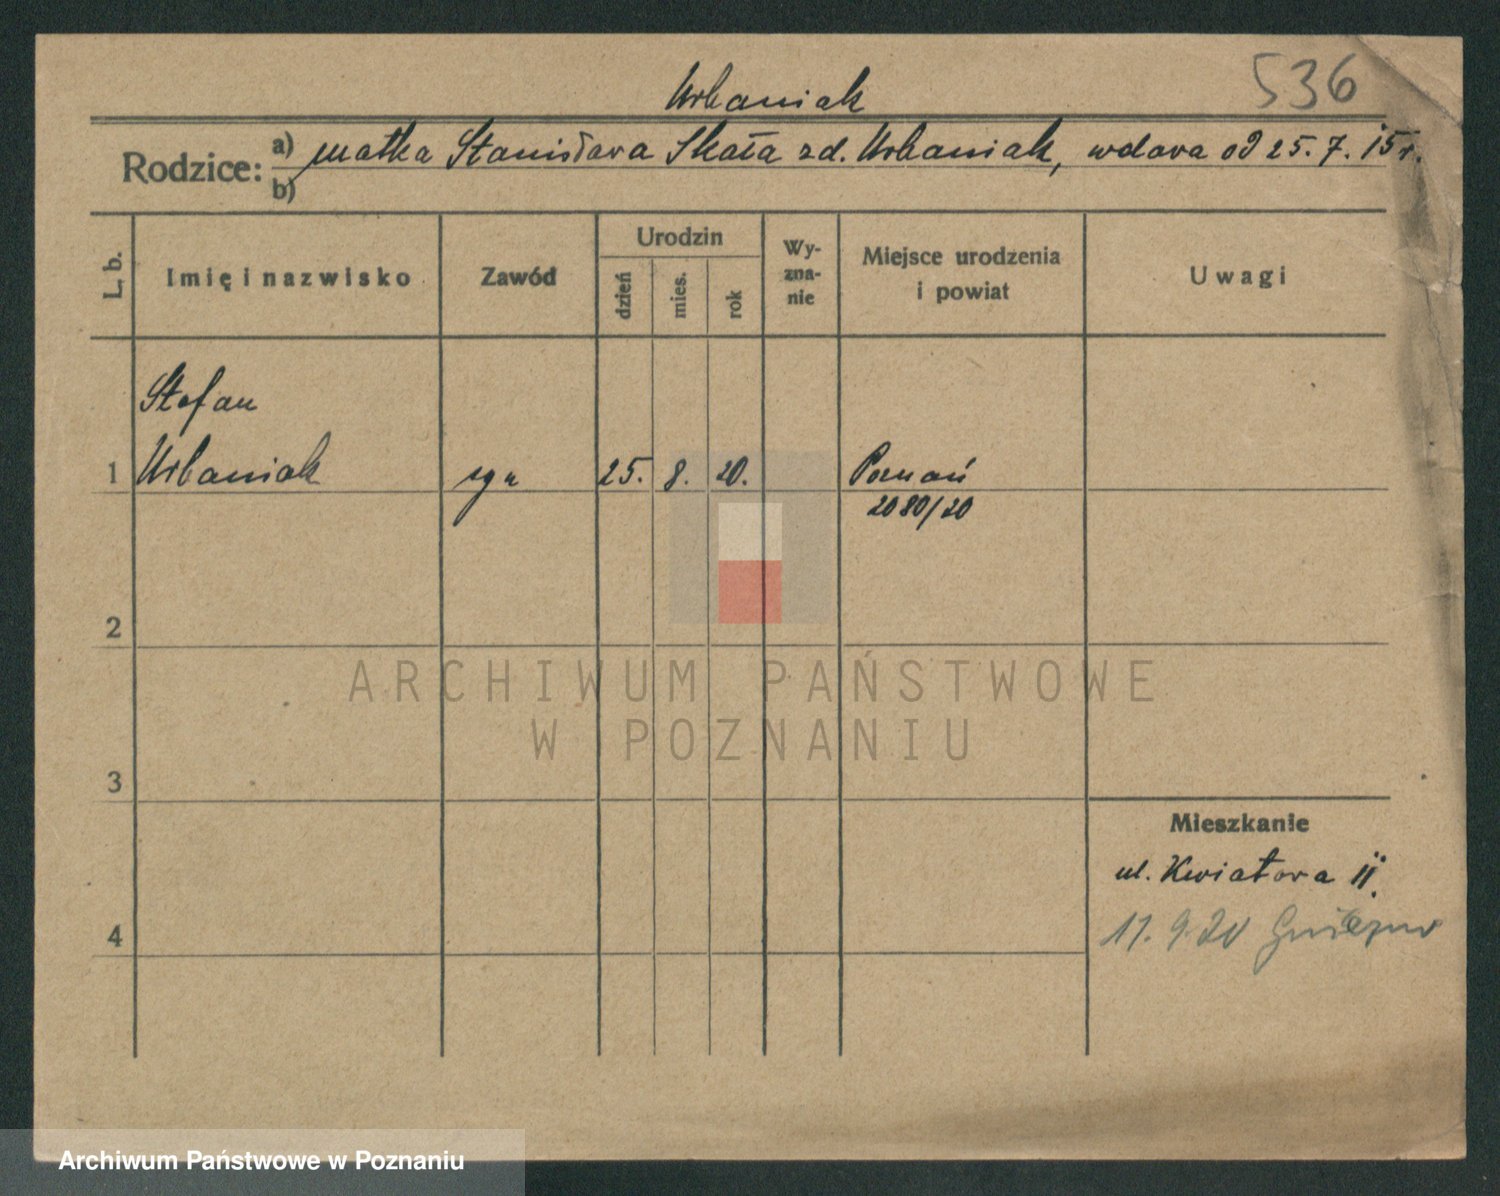 536
Urbaniak
Rodzice: a) matka Stanisława Skała zd. Urbaniak, wdowa od 25. 7. 15 r.
b)
L. b.
Imię i nazwisko
Zawód
Urodzin
dzień
mies.
rok
Wy-
zna-
nie
Miejsce urodzenia
i powiat
Uwagi
Stefan
1 Urbaniak 25. 8. 20. Poznań
2080/20
2
3
4
Mieszkanie
ul. Kwiatowa 11.
11. 9. 20 Gniezno
ARCHIWUM PAŃSTWOWE
W POZNANIU
Archiwum Państwowe w Poznaniu